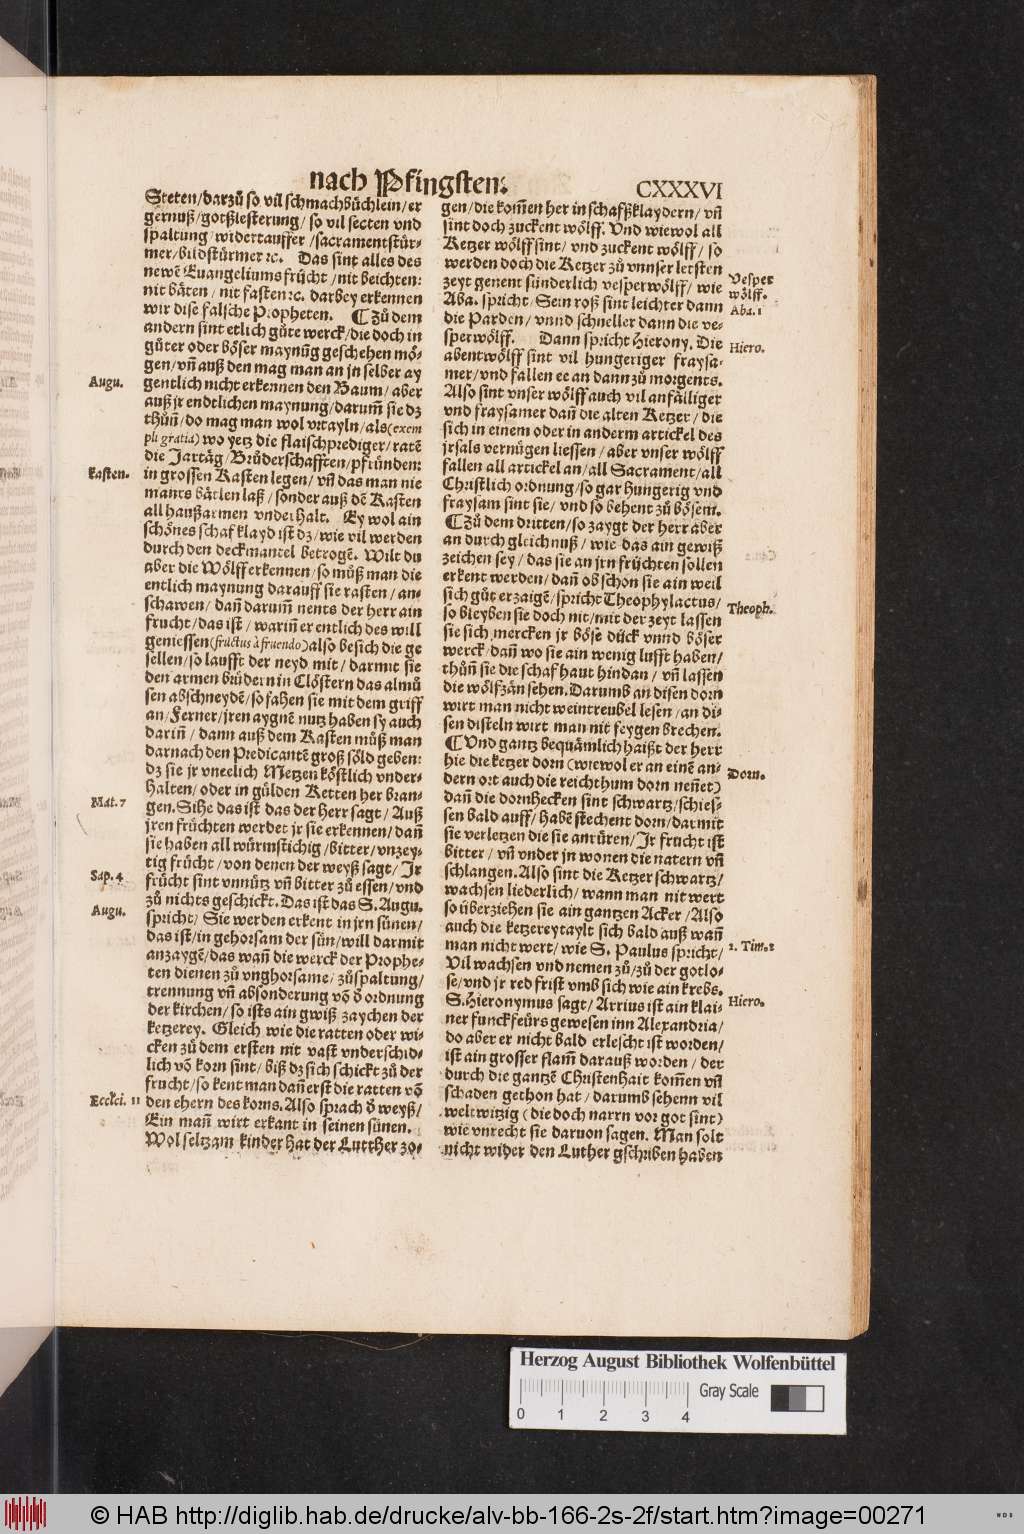 nach Pfingsten.
CXXXVI
Steten/darzů so vil schmachbüchlein/er
gernuß/gotßlesterung/so vil secten vnd
spaltung/widertauffer/sacramentstür-
mer/bildstürmer ꝛc. Das sint alles des
newē Euangeliums frücht/nit beichten:
nit bäten/nit fasten ꝛc. darbey erkennen
wir dise falsche Propheten. ¶ Zů dem
andern sint etlich gůte werck/die doch in
gůter oder böser maynūg geschehen mö-
gen/vñ auß den mag man an jn selber ay
gentlich nicht erkennen den Baum/aber
auß jr endtlichen maynung/darum̃ sie dz
thůñ/do mag man wol vrtayln/als (exem
pli gratia) wo yetz die flaischprediger/ratē
die Jartäg/Brůderschafften/pfründen:
in grossen Kasten legen/vñ das man nie
mants bätlen laß/sonder auß dē Kasten
all haußarmen vnderhalt. Ey wol ain
schönes schafklayd ist dz/wie vil werden
durch den deckmantel betrogē. Wilt du
aber die Wölff erkennen/so můß man die
entlich maynung darauff sie rasten/an-
schawen/dañ darum̃ nents der herr ain
frucht/das ist/wariñ er entlich des will
geniessen (fructus à fruendo) also besich die ge
sellen/so laufft der neyd mit/darmit sie
den armen brüdern in Clöstern das almů
sen abschneydē/so fahen sie mit dem griff
an/Ferner/jren aygnē nutz haben sy auch
dariñ/dann auß dem Kasten můß man
darnach den Predicantē groß söld geben:
dz sie jr vneelich Metzen köstlich vnder-
halten/oder in gülden Ketten her bran-
gen. Sihe das ist das der herr sagt/Auß
jren früchten werdet jr sie erkennen/dañ
sie haben all würmstichig/bitter/vnzey-
tig frücht/von denen der weyß sagt/Ir
frücht sint vnnütz vñ bitter zů essen/vnd
zů nichts geschickt. Das ist das S. Augu.
spricht/Sie werden erkent in jrn sünen/
das ist/in gehorsam der sün/will darmit
anzaygē/das wañ die werck der Prophe-
ten dienen zů vnghorsame/zůspaltung/
trennung vñ absonderung võ ď ordnung
der kirchen/so ists ain gwiß zaychen der
ketzerey. Gleich wie die ratten oder wi-
cken zů dem ersten nit vast vnderschid-
lich võ korn sint/biß dz sich schickt zů der
frucht/so kent man dañ erst die ratten võ
den ehern des korns. Also sprach ď weyß/
Ein mañ wirt erkant in seinen sünen.
Wol seltzam kinder hat der Lutther zo-
Augu.
kasten.
Mat. 7
Sap. 4
Augu.
Eccłci. 11
gen/die kom̃en her in schafßklaydern/vñ
sint doch zuckent wölff. Vnd wiewol all
Ketzer wölff sint/vnd zuckent wölff/so
werden doch die Ketzer zů vnnser letsten
zeyt genent sünderlich vesperwölff/wie
Aba. spricht/Sein roß sint leichter dann
die Parden/vnnd schneller dann die ve-
sperwölff. Dann spricht Hierony. Die
abentwölff sint vil hungeriger fraysa-
mer/vnd fallen ee an dann zů morgents.
Also sint vnser wölff auch vil anfälliger
vnd fraysamer dañ die alten Ketzer/die
sich in einem oder in anderm artickel des
jrsals vernügen liessen/aber vnser wölff
fallen all artickel an/all Sacrament/all
Christlich ordnung/so gar hungerig vnd
fraysam sint sie/vnd so behent zů bösem.
¶ Zů dem dritten/so zaygt der herr aber
an durch gleichnuß/wie das ain gewiß
zeichen sey/das sie an jrn früchten sollen
erkent werden/dañ ob schon sie ain weil
sich gůt erzaigē/spricht Theophylactus/
so bleyben sie doch nit/mit der zeyt lassen
sie sich mercken jr böse dück vnnd böser
werck/dañ wo sie ain wenig lufft haben/
thůñ sie die schaf haut hindan/vñ lassen
die wölfzän sehen. Darumb an disen dorn
wirt man nicht weintreubel lesen/an di-
sen disteln wirt man nit feygen brechen.
¶ Vnd gantz bequämlich haißt der herr
hie die ketzer dorn (wiewol er an einē an-
dern ort auch die reichthum dorn neñet)
dañ die dornhecken sint schwartz/schies-
sen bald auff/habē stechent dorn/darmit
sie verletzen die sie anrüren/Ir frucht ist
bitter/vñ vnder jn wonen die natern vñ
schlangen. Also sint die Ketzer schwartz/
wachsen liederlich/wann man nit wert
so überziehen sie ain gantzen Acker/Also
auch die ketzerey taylt sich bald auß wañ
man nicht wert/wie S. Paulus spricht/
Vil wachsen vnd nemen zů/zů der gotlo-
se/vnd jr red frist vmb sich wie ain krebs.
S. Hieronymus sagt/Arrius ist ain klai-
ner funck feürs gewesen inn Alexandria/
do aber er nicht bald erlescht ist worden/
ist ain grosser flam̃ darauß worden/der
durch die gantzē Christenhait kom̃en vñ
schaden gethon hat/darumb sehenn vil
weltwitzig (die doch narrn vor got sint)
wie vnrecht sie daruon sagen. Man solt
nicht wider den Luther gschriben haben
Vesper
wölff.
Aba. 1
Hiero.
Theoph.
Dorn.
2. Tim. 2
Hiero.
Herzog August Bibliothek Wolfenbüttel
Gray Scale
0 1 2 3 4
© HAB http://diglib.hab.de/drucke/alv-bb-166-2s-2f/start.htm?image=00271